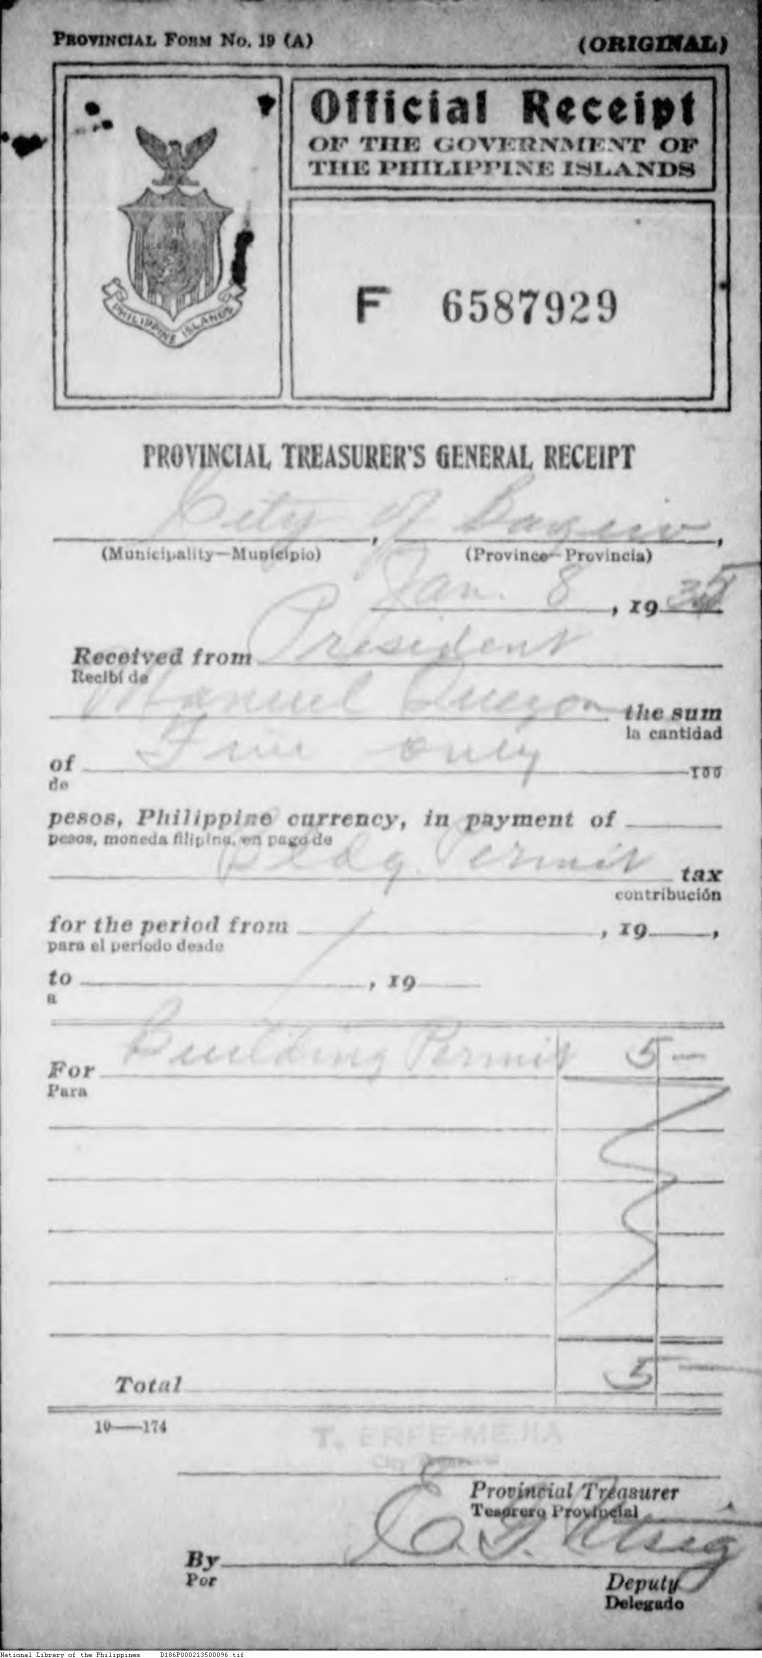 PROVINCIAL FORM NO. 19 (A)
(ORIGINAL)
Official Receipt
OF THE GOVERNMENT OF
THE PHILIPPINE ISLANDS
PHILIPPINE ISLANDS
F 6587929
PROVINCIAL TREASURER'S GENERAL RECEIPT
City of Baguio
(Municipality—Municipio) , (Province—Provincia) ,
Jan. 8 , 1935
Received from President
Recibí de
Manuel Quezon the sum
la cantidad
of Five only 100
de
pesos, Philippine currency, in payment of
pesos, moneda filipina, en pago de
Bldg. Permit tax
contribución
for the period from , 19 ,
para el período desde
to , 19
a
For Building Permit 5 —
Para
Total 5 —
10—174
T. ERFE-MEJIA
City Treasurer
Provincial Treasurer
Tesorero Provincial
By
Por
Deputy
Delegado
National Library of the Philippines D186P000213500096.tif